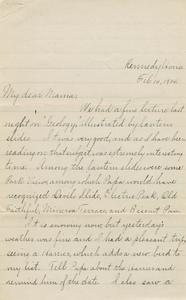 Kennedy Iowa
Feb 10, 1904
My dear Mama:
We had a fine lecture last
night on "Geology" illustrated by lantern
slides. It was very good, and as I have been
reading on that subject was extremely interesting
to me. Among the lantern slides were some
Park views among which Papa would have
recognized: Devil's Slide, Electric Peak, Old
Faithful, Minerva Terrace, and Biscuit
It is snowing now but yesterday's
weather was fine and I had a pleasant trip,
seeing a Harrier, which adds a new bird to
my list. Tell Papa about the Harrier and
remind him of the date. I also saw a